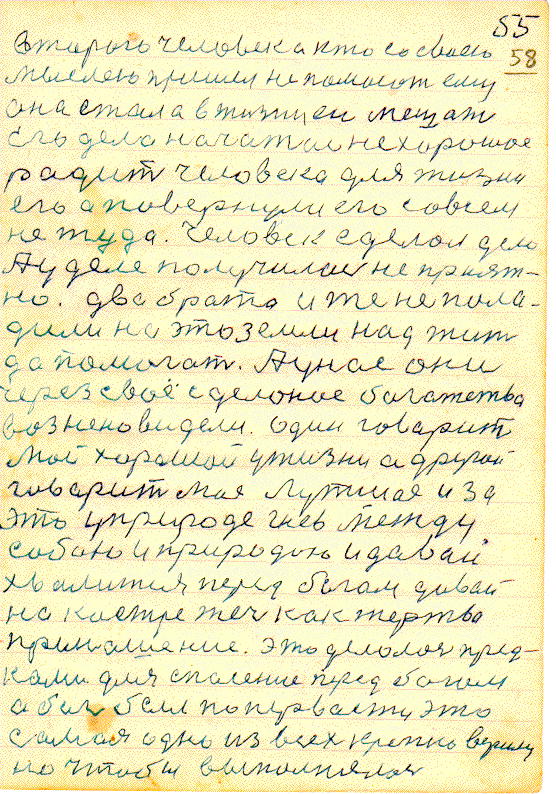 55
58
второго человека кто со своею
мыслею пришел не помогат ему
она стала в жизни ему мешат
Его дело начатои нехорошое
радит человека для жизни
его а повернули его совсем
не туда. Человек сделол дело
А у деле получилос не прият-
но. два брата и те не пола-
дили на это земли над жит
да помогат. А у нас они
через своё сделоное багатетва
возненовидели. один говарит
мой хорошой у жизни а другой
говарит мае лутшае и за
это у природе гнев между
собою и природою и давай
хвалится перед богам давай
на костре жеч как жертва
приношение. это делолос пред-
ками для спасение перед богом
а бог был по первасту это
самая одно из всех крепко верили
но чтобы выполнялос